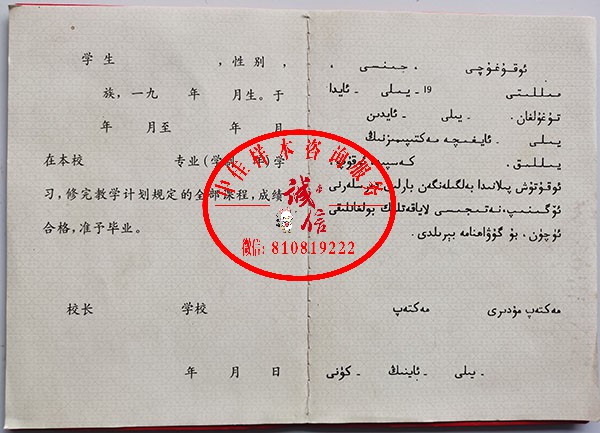 学生 ，性别 ，
族，一九 年 月生。于
年 月至 年 月
在本校 专业(学制 年)学
习，修完教学计划规定的全部课程，成绩
合格，准予毕业。
校长 学校
年 月 日
ئوقۇغۇچى ، جىنسى ،
مىللىتى 19 - يىلى - ئايدا
تۇغۇلغان. - يىلى - ئايدىن
- يىلى - ئايغىچە مەكتىپىمىزنىڭ
يىللىق. كەسپىدە ئوقۇپ
ئوقۇتۇش پىلانىدا بەلگىلەنگەن بارلىق دەرسلەرنى
ئۆگىنىپ، نەتىجىسى لاياقەتلىك بولغانلىقى
ئۈچۈن، بۇ گۇۋاھنامە بېرىلدى.
مەكتەپ مۇدىرى مەكتەپ
- يىلى - ئاينىڭ - كۈنى
中佳样本咨询服务
诚信
微信: 810819222